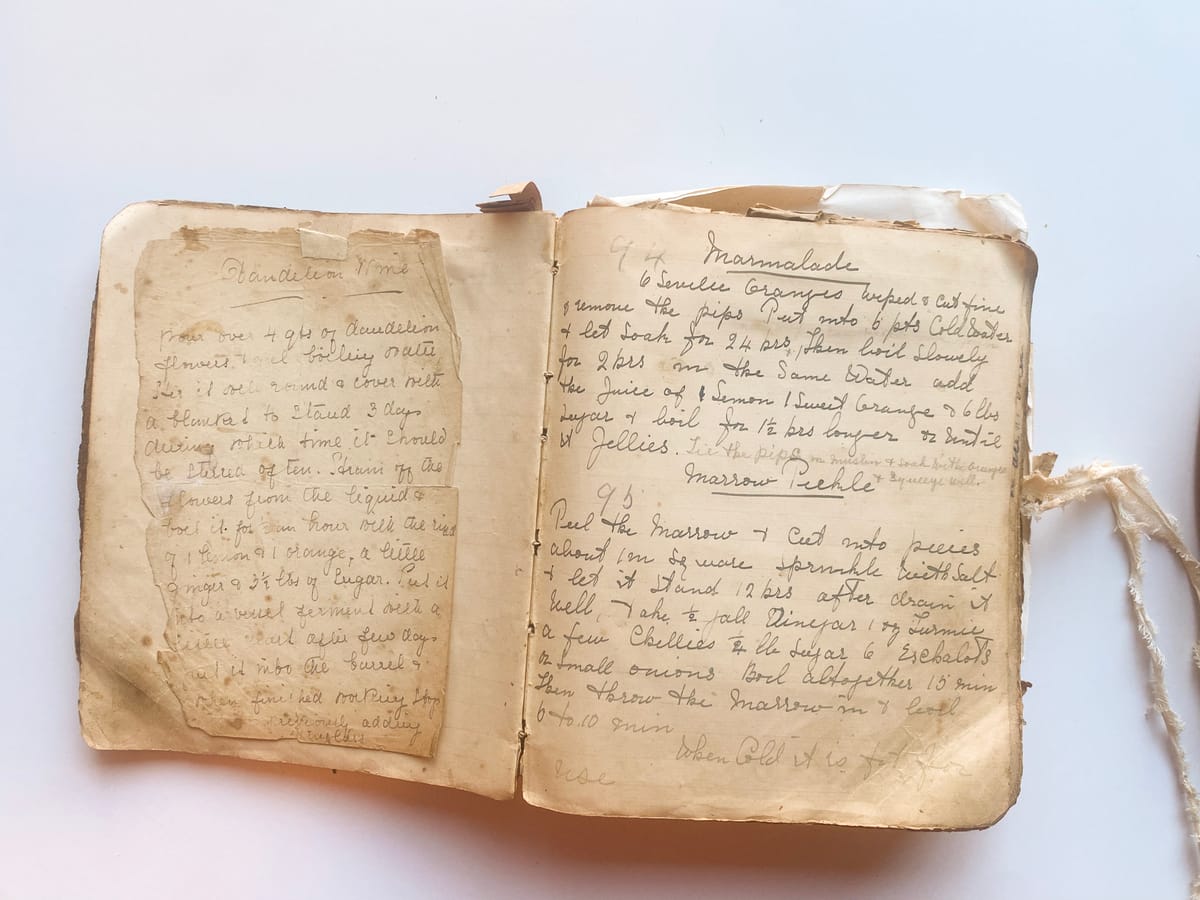 Dandelion Wine
Pour over 4 qts of dandelion
flowers boiling water
Stir it well round & cover with
a blanket to Stand 3 days
during which time it Should
be Stirred often. Strain off the
flowers from the liquid &
boil it for ½ an hour with the rind
of 1 lemon & 1 orange, a little
ginger & 3½ lbs of Sugar. Put it
into a vessel ferment with a
little yeast after few days
put it into the barrel &
when finished working Stop
previously adding
94
Marmalade
6 Seville Oranges, wiped & Cut fine
& remove the pips Put into 6 pts Cold Water
& let Soak for 24 hrs, Then boil Slowly
for 2 hrs in the Same Water add
the Juice of 1 Lemon 1 Sweet Orange & 6 lbs
Sugar & boil for 1½ hrs longer or Until
it Jellies. Tie the pips in muslin & Soak with oranges
& Squeeze well.
Marrow Pickle
95
Peel the Marrow & Cut into pieces
about 1 in Square Sprinkle with Salt
& let it Stand 12 hrs after drain it
Well, Take ½ gall Vinegar 1 oz Turmic
a few Chillies ¼ lb Sugar 6 Eschalots
or Small onions Boil altogether 15 min
Then throw the Marrow in & boil
6 to 10 min
When Cold it is fit for
use